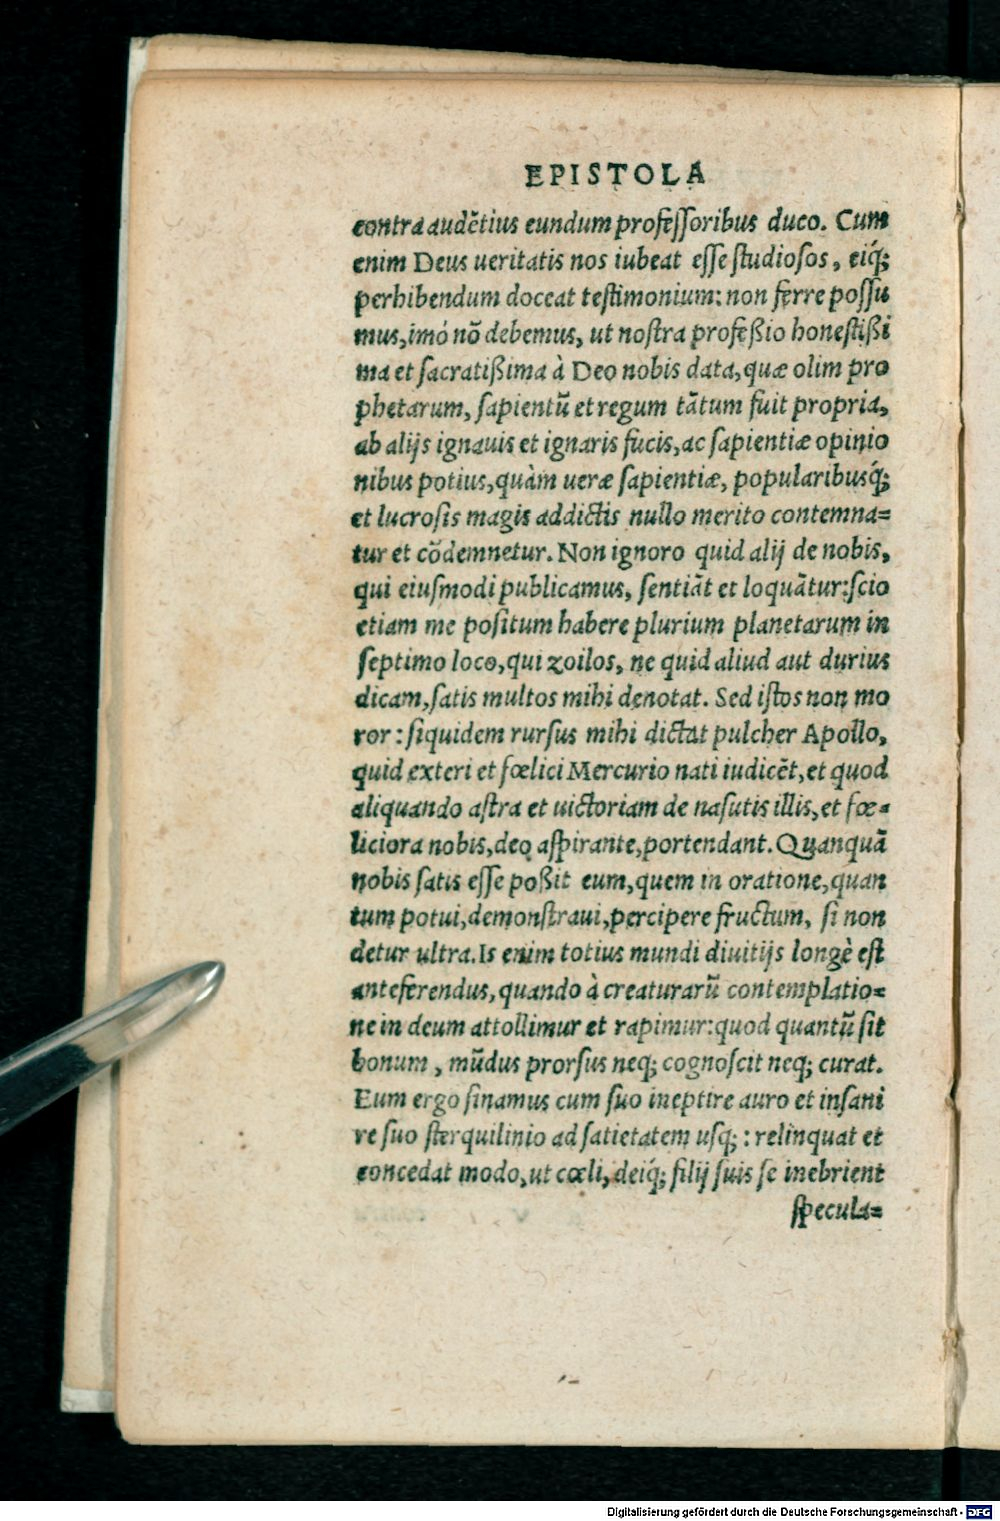 EPISTOLA
contra audẽtius eundum professoribus duco. Cum
enim Deus ueritatis nos iubeat esse studiosos, eiq́;
perhibendum doceat testimonium: non ferre possu
mus, imó nõ debemus, ut nostra profeßio honestißi
ma et sacratißima à Deo nobis data, quæ olim pro
phetarum, sapientũ et regum tãtum fuit propria,
ab alijs ignauis et ignaris fucis, ac sapientiæ opinio
nibus potius, quàm ueræ sapientiæ, popularibusq́;
et lucrosis magis addictis nullo merito contemna=
tur et cõdemnetur. Non ignoro quid alij de nobis,
qui eiusmodi publicamus, sentiãt et loquãtur: scio
etiam me positum habere plurium planetarum in
septimo loco, qui zoilos, ne quid aliud aut durius
dicam, satis multos mihi denotat. Sed istos non mo
ror: siquidem rursus mihi dictat pulcher Apollo,
quid exteri et fœlici Mercurio nati iudicẽt, et quod
aliquando astra et uictoriam de nasutis illis, et fœ=
liciora nobis, deo aspirante, portendant. Quanquã
nobis satis esse poßit eum, quem in oratione, quan
tum potui, demonstraui, percipere fructum, si non
detur ultra. Is enim totius mundi diuitijs longè est
anteferendus, quando à creaturarũ contemplatio=
ne in deum attollimur et rapimur: quod quantũ sit
bonum, mũdus prorsus neq; cognoscit neq; curat.
Eum ergo sinamus cum suo ineptire auro et insani
re suo sterquilinio ad satietatem usq;: relinquat et
concedat modo, ut cœli, deiq́; filij suis se inebrient
specula=
Digitalisierung gefördert durch die Deutsche Forschungsgemeinschaft - DFG